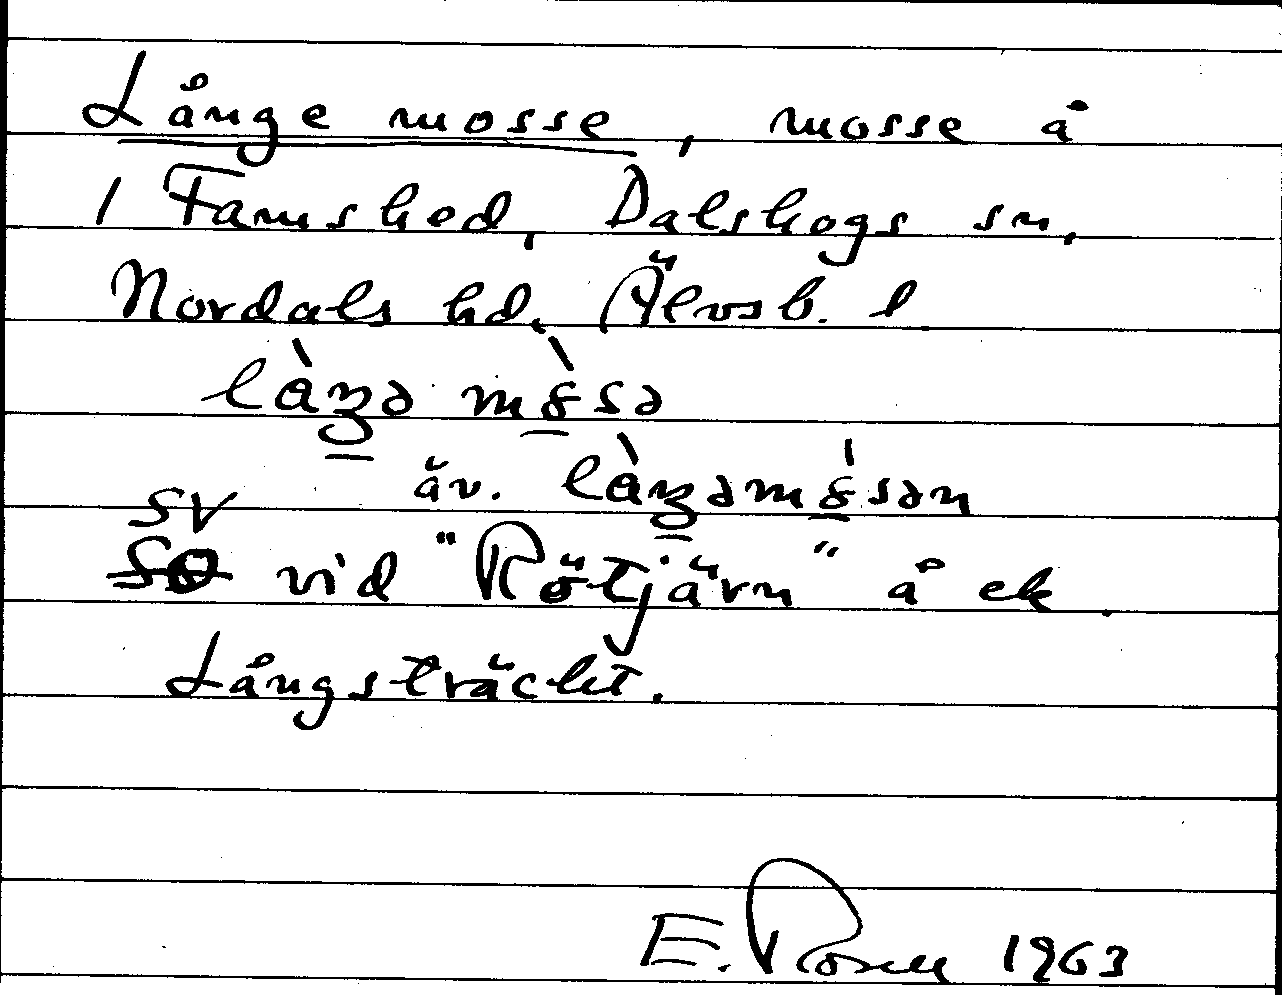 Långe mosse, mosse å
1 Famshed, Dalskogs sn,
Nordals hd, Älvsb. l
làŋə mòsə
äv. làŋəmósən
SV
SO vid "Rötjärn" å ek.
Långsträckt.
E. 1963